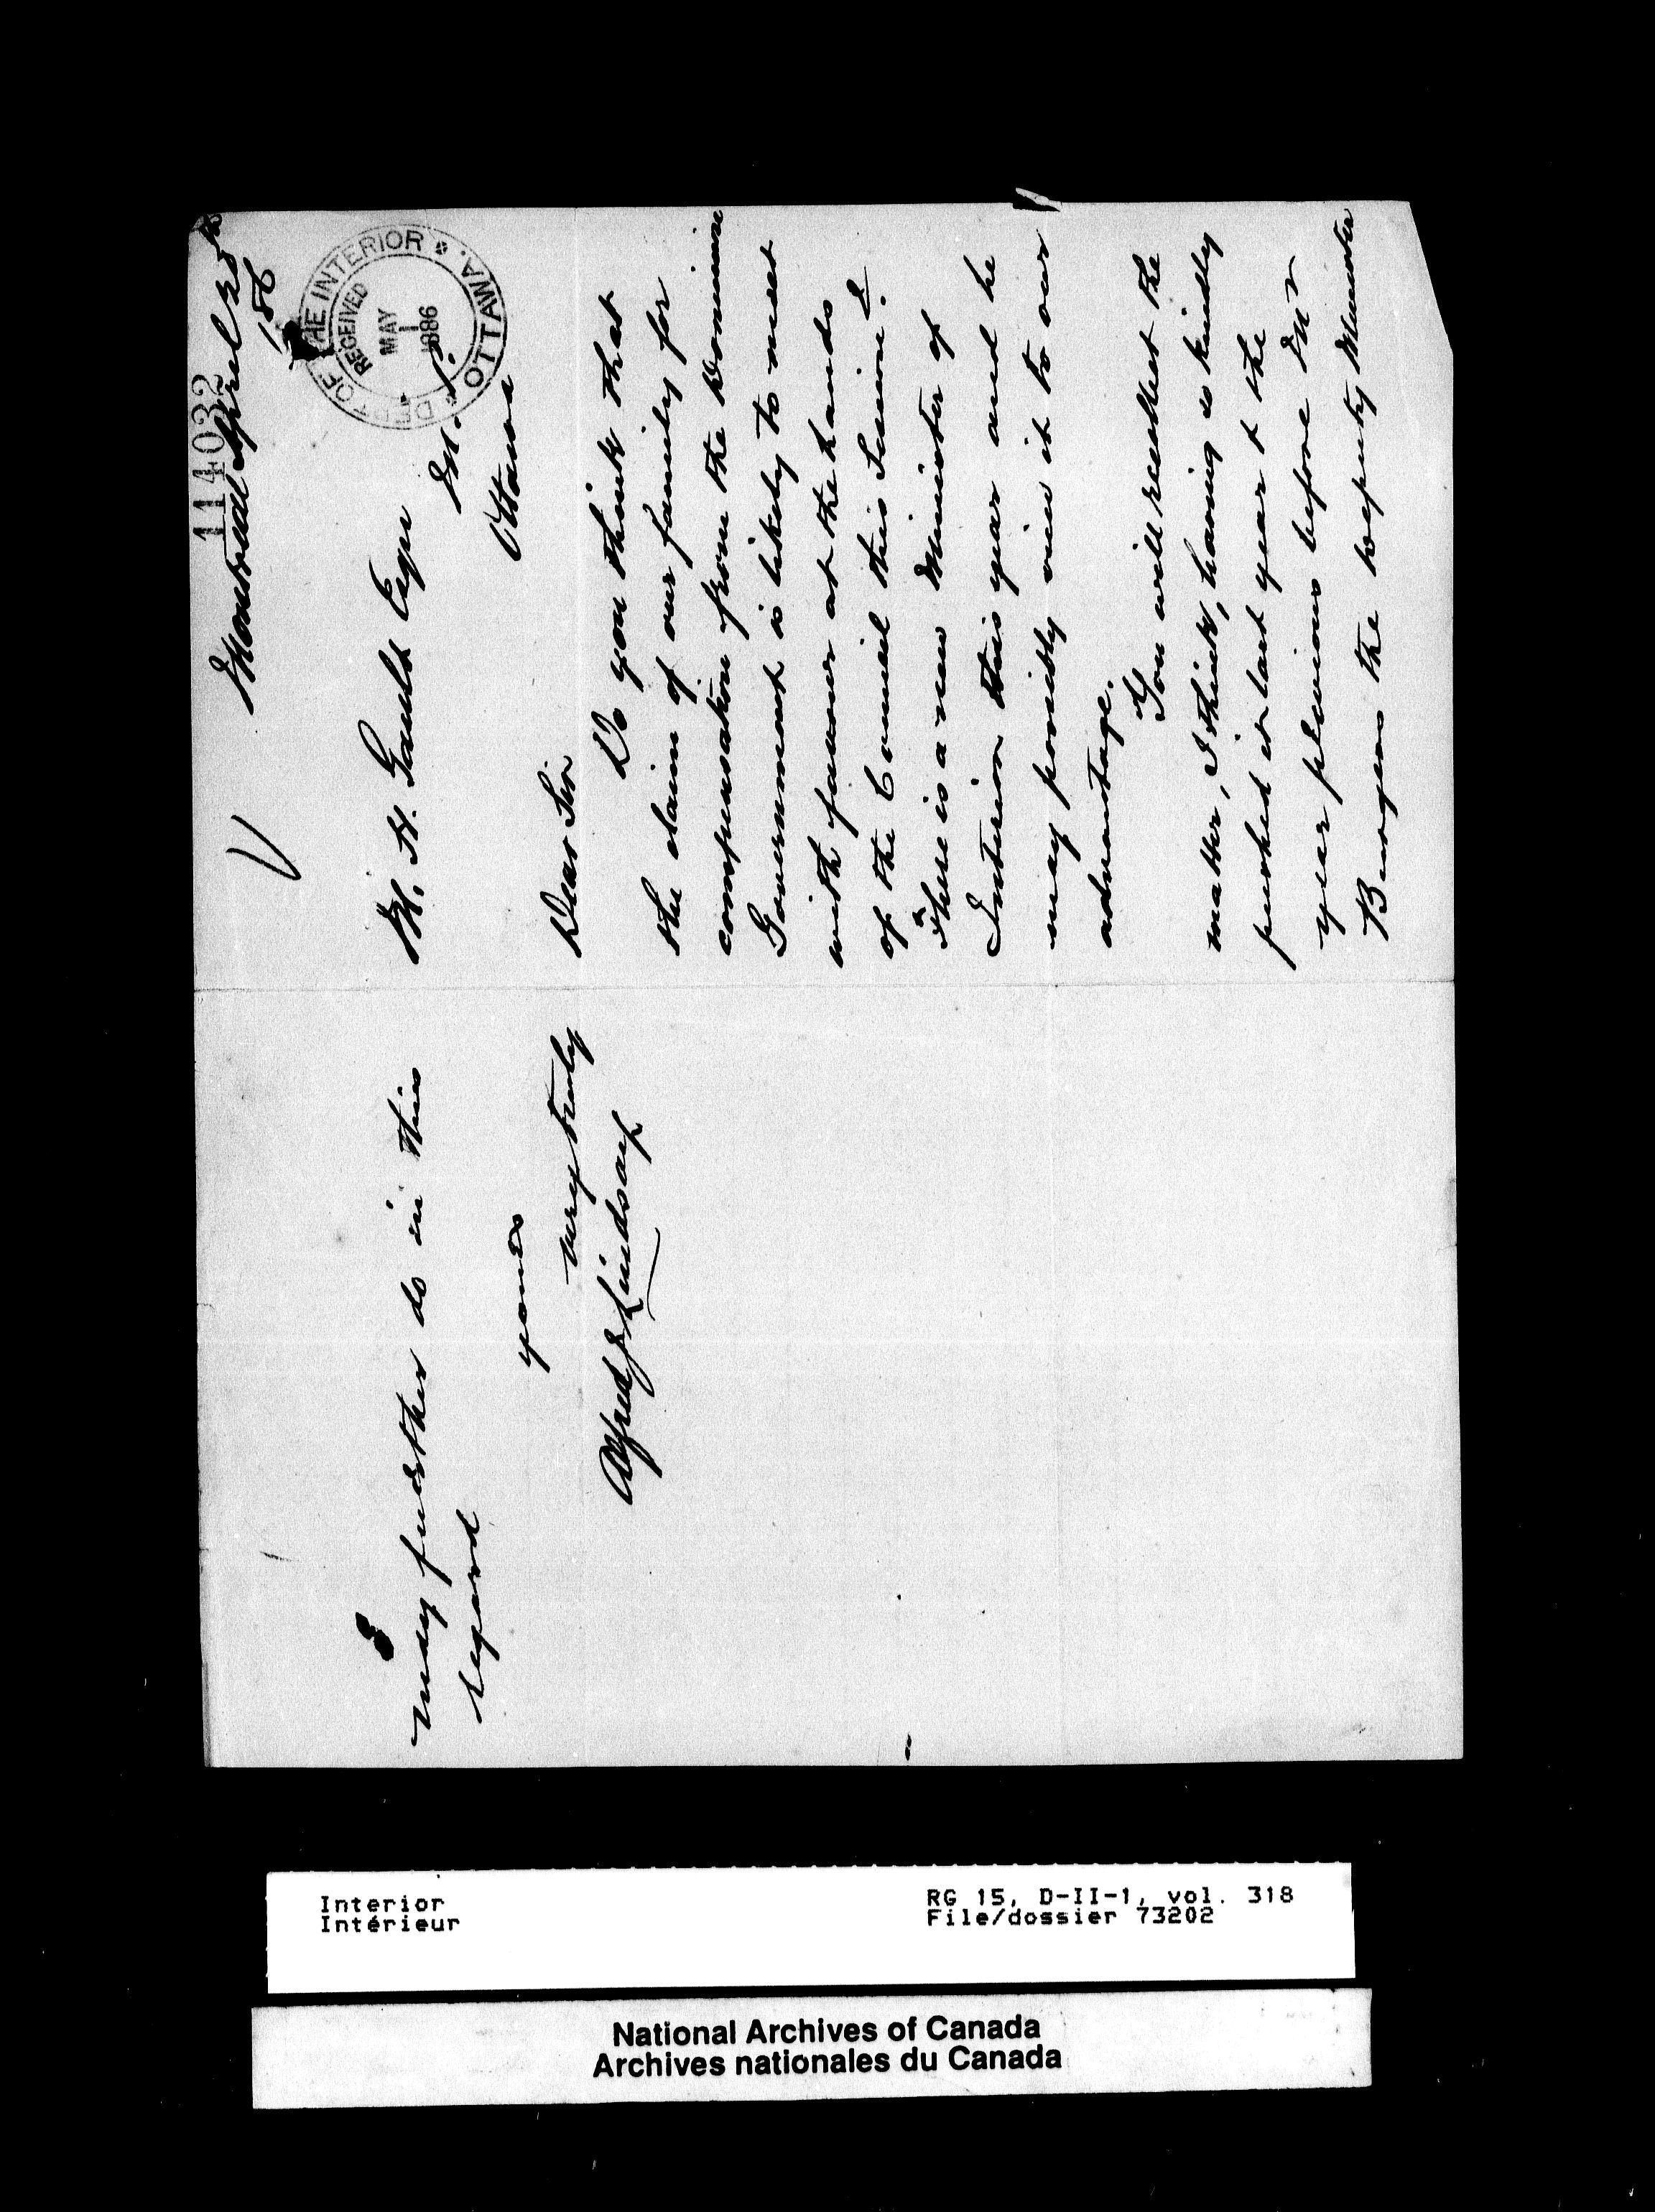 114032
Montreal April 28th
/86
DEPT OF THE INTERIOR
RECEIVED
MAY 1 1886
OTTAWA.
M. H. Gault Esqr
M.P.
Ottawa
Dear Sir
Do you think that
the claim of our family for
compensation from the Dominion
Government is likely to meet
with favour at the hands
of the Council this Session?
There is a new Minister of
Interior this year and he
may possibly view it to our
advantage.
You will recollect the
matter, I think, having so kindly
pushed it last year & the
year previous before Mr
Burgess the Deputy Minister
may further do in this
regard
yours
very truly
Alfred Lindsay
Interior
Intérieur
RG 15, D-II-1, vol. 318
File/dossier 73202
National Archives of Canada
Archives nationales du Canada